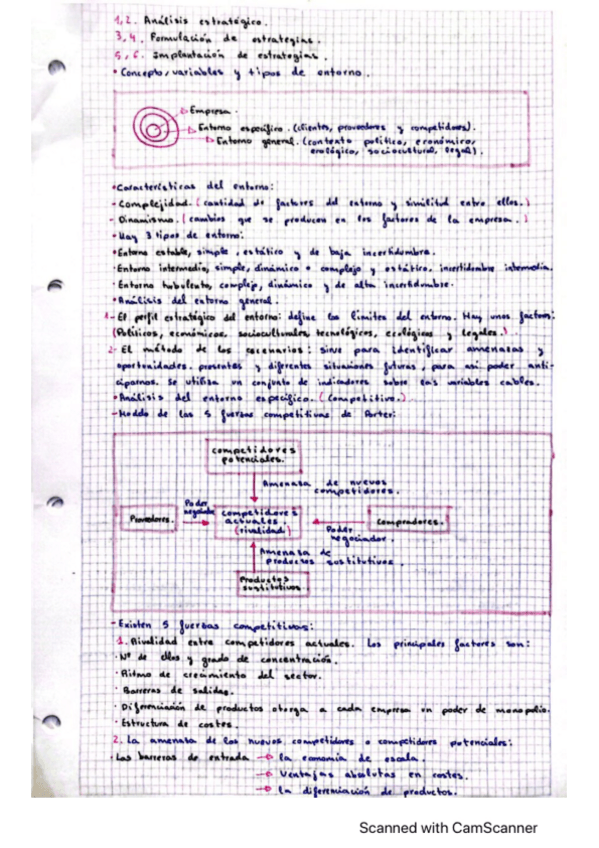 1,2. Análisis estratégico.
3,4. Formulación de estrategias.
5,6. Implantación de estrategias.
• Concepto, variables y tipos de entorno.
Empresa.
Entorno específico. (clientes, proveedores y competidores).
Entorno general. (contexto político, económico,
ecológico, sociocultural, legal).
• Características del entorno:
- Complejidad. (cantidad de factores del entorno y similitud entre ellos.)
- Dinamismo. (cambios que se producen en los factores de la empresa.)
- Hay 3 tipos de entorno:
• Entorno estable, simple, estático y de baja incertidumbre.
· Entorno intermedio, simple, dinámico o complejo y estático, incertidumbre intermedia.
· Entorno turbulento, complejo, dinámico y de alta incertidumbre.
• Análisis del entorno general.
1- El perfil estratégico del entorno: define los límites del entorno. Hay unos factores:
(Políticos, económicos, socioculturales, tecnológicos, ecológicos y legales.)
2- El método de los escenarios: sirve para identificar amenazas y
oportunidades. presentes y diferentes situaciones futuras, para así poder anti-
ciparnos. Se utiliza un conjunto de indicadores sobre las variables
• Análisis del entorno específico. (Competitivo.)
- Modelo de las 5 fuerzas competitivas de Porter:
competidores
potenciales.
Amenaza de nuevos
competidores.
Poder
Proveedores.
competidores
actuales
(rivalidad)
compradores.
Poder
negociador.
Amenaza de
productos sustitutivos.
Productos
sustitutivos
- Existen 5 fuerzas competitivas:
1. Rivalidad entre competidores actuales. Los principales factores son:
· Nº de ellos y grado de concentración.
· Ritmo de crecimiento del sector.
· Barreras de salidas.
· Diferenciación de productos otorga a cada empresa un poder de monopolio.
· Estructura de costes.
2. La amenaza de los nuevos competidores o competidores potenciales:
· Las barreras de entrada → la economía de escala.
→ Ventajas absolutas en costes.
→ la diferenciación de productos.
Scanned with CamScanner